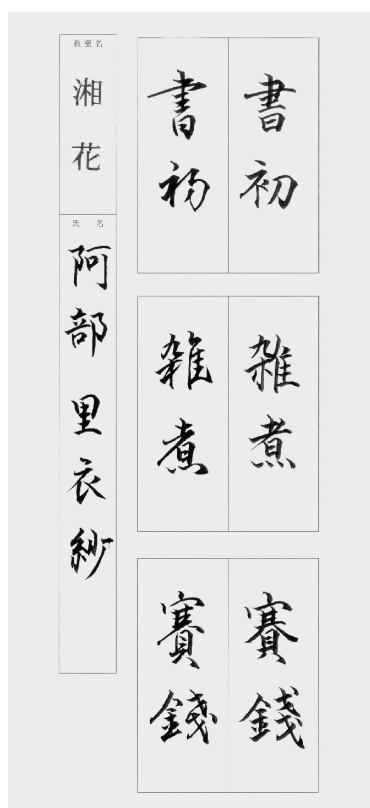 書初
書初
雑煮
雑煮
賽銭
賽銭
教室名
湘花
氏名
阿部里衣紗